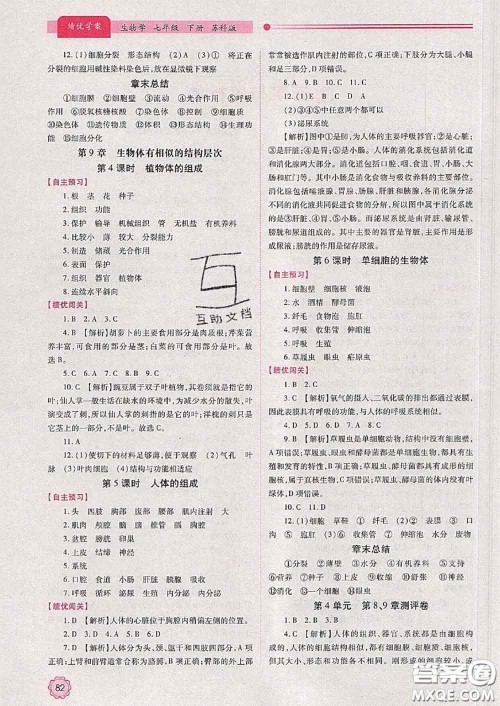 绩优学案 生物学 七年级 下册 苏科版
12.(1)细胞分裂 形态结构 (2)④ (3)将正在
分裂的细胞用碱性染料染色后,放在显微镜下观察
章末总结
①细胞膜 ②细胞壁 ③流动 ④光合作用 ⑤呼吸
作用 ⑥脱氧核糖核酸 ⑦细胞核 ⑧DNA ⑨结构
⑩染色体 ⑪遗传物质 ⑫染色体 ⑬形态结构 ⑭生理功
能 ⑮细胞分化
第9章 生物体有相似的结构层次
第4课时 植物体的组成
【自主预习】
1.根 茎 花 种子
2.组织 功能
3.保护 输导 机械组织 管 无机盐 有机养料
4.比较小 薄 较大 分裂能力
5.制造 储藏 光合作用
6.表面 保护
7.组织 器官 植物体
8.连续水平斜向
【绩优闯关】
1.B 2.A 3.C
4.B 【解析】胡萝卜的主要食用部分是肉质根;芹菜营
养丰富,可食用的部分是茎;白菜的可食用部分是叶。故
选B。
5.C 6.C 7.B 8.B 9.A
10.C 【解析】豌豆属于双子叶植物,其卷须就是指它的
叶;仙人掌一般生活在缺水的环境中,因此为了减少散失,
叶演变成了刺,所以仙人掌的刺指的是它的叶;洋槐的刺只
是它的茎。
11.A
12.(1)使切下的材料足够薄,便于观察 (2)气孔 叶
脉 (3)叶肉细胞 (4)结构与功能相适应
第5课时 人体的组成
【自主预习】
1.头 四肢 胸部 腹部 颈部 四肢 臀部
2.肌肉 颅腔 椎管 脑 脊髓
3.盆腔 膀胱 卵巢
4.上皮 结缔 神经
5.系统
6.口腔 食道 胃 小肠 大肠 肝脏
7.心脏 血管
8.呼吸 循环 泌尿 神经 生殖 内分泌
【绩优闯关】
1.D 【解析】人体的心脏位于胸腔内稍偏左侧的位置。
2.D 【解析】人体分为头、颈、躯干和四肢四个部分,A
项正确;上臂和前臂通常合称为上肢,B项正确;人的颈部
82
常常被选作肌内注射的部位,C项正确;下肢分为大腿、小腿
和足三部分,D项错误。
3.C 4.B 5.B 6.A 7.A 8.B 9.C 10.C 11.D
12.(1)E B A C D
(2)③④⑤中任意两个都可以
(3)泌尿系统
【解析】图中①是肺,为人体的主要呼吸器官;②是心脏;
③是肝脏;④是胃;⑤是小肠;⑥是肾脏。人体的消化系统由
消化道和消化腺两大部分组成,消化道包括口腔、咽、食道、
胃、小肠、大肠和肛门等器官,消化腺包括唾液腺、胃腺、肠
腺、肝脏和胰腺等器官,这些器官协调配合,共同完成对食物
的消化以及营养物质的吸收,所以图中属于消化系统的器官
的是③肝脏,④胃,⑤小肠。而泌尿系统是由肾脏、输尿管、
膀胱和尿道组成的。其中,肾脏是主要器官,它的作用是形成
尿液;膀胱的作用是暂时贮存尿液。
第6课时 单细胞的生物体
【自主预习】
1.细胞壁 细胞核 液泡
2.水 酒精 酵母菌
3.纤毛 食物泡 氧气
4.呼吸 收集管 伸缩泡
5.呼吸 消化 生殖
6.草履虫 眼虫 疟原虫
【绩优闯关】
1.B 2.C 3.D 4.B 5.B 6.D 7.D
8.C 【解析】氧气的摄入、二氧化碳的排出都通过表膜进
行,它与人体的呼吸系统相似。
9.B 10.A
11.C 【解析】草履虫是单细胞动物,A项错误;变形虫、
草履虫、眼虫和酵母菌都是单细胞的生物体,都具有生长、生
殖和发育的特征,B项错误,C项正确;变形虫、眼虫、草履虫
都没有细胞壁,变形虫、眼虫、草履虫、酵母菌的体内没有组
织,D项错误。
12.(1)细胞 草履虫 (2)纤毛 (2)表膜 ③ 口
沟 食物泡 (4)伸缩泡 收集管
章末总结
①分裂 ②薄 ③大 ④细胞壁 ⑤内外表面 ⑥支持
⑦营养 ⑧种子 ⑨果实 ⑩系统 ⑪神经 ⑫循环
⑬呼吸 ⑭单细胞 ⑮草履虫
第4单元 第8、9章测评卷
1.B 【解析】人体的组织、器官、系统都是由细胞构成
的,A项正确;系统是由多种器官组成的,B项错误;人体有
八大系统,C项正确;细胞分化形成组织,D项正确。
2.D 【解析】器官是由不同的组织构成的,A项错误;成
互助文档
答案圈
MXQE.COM